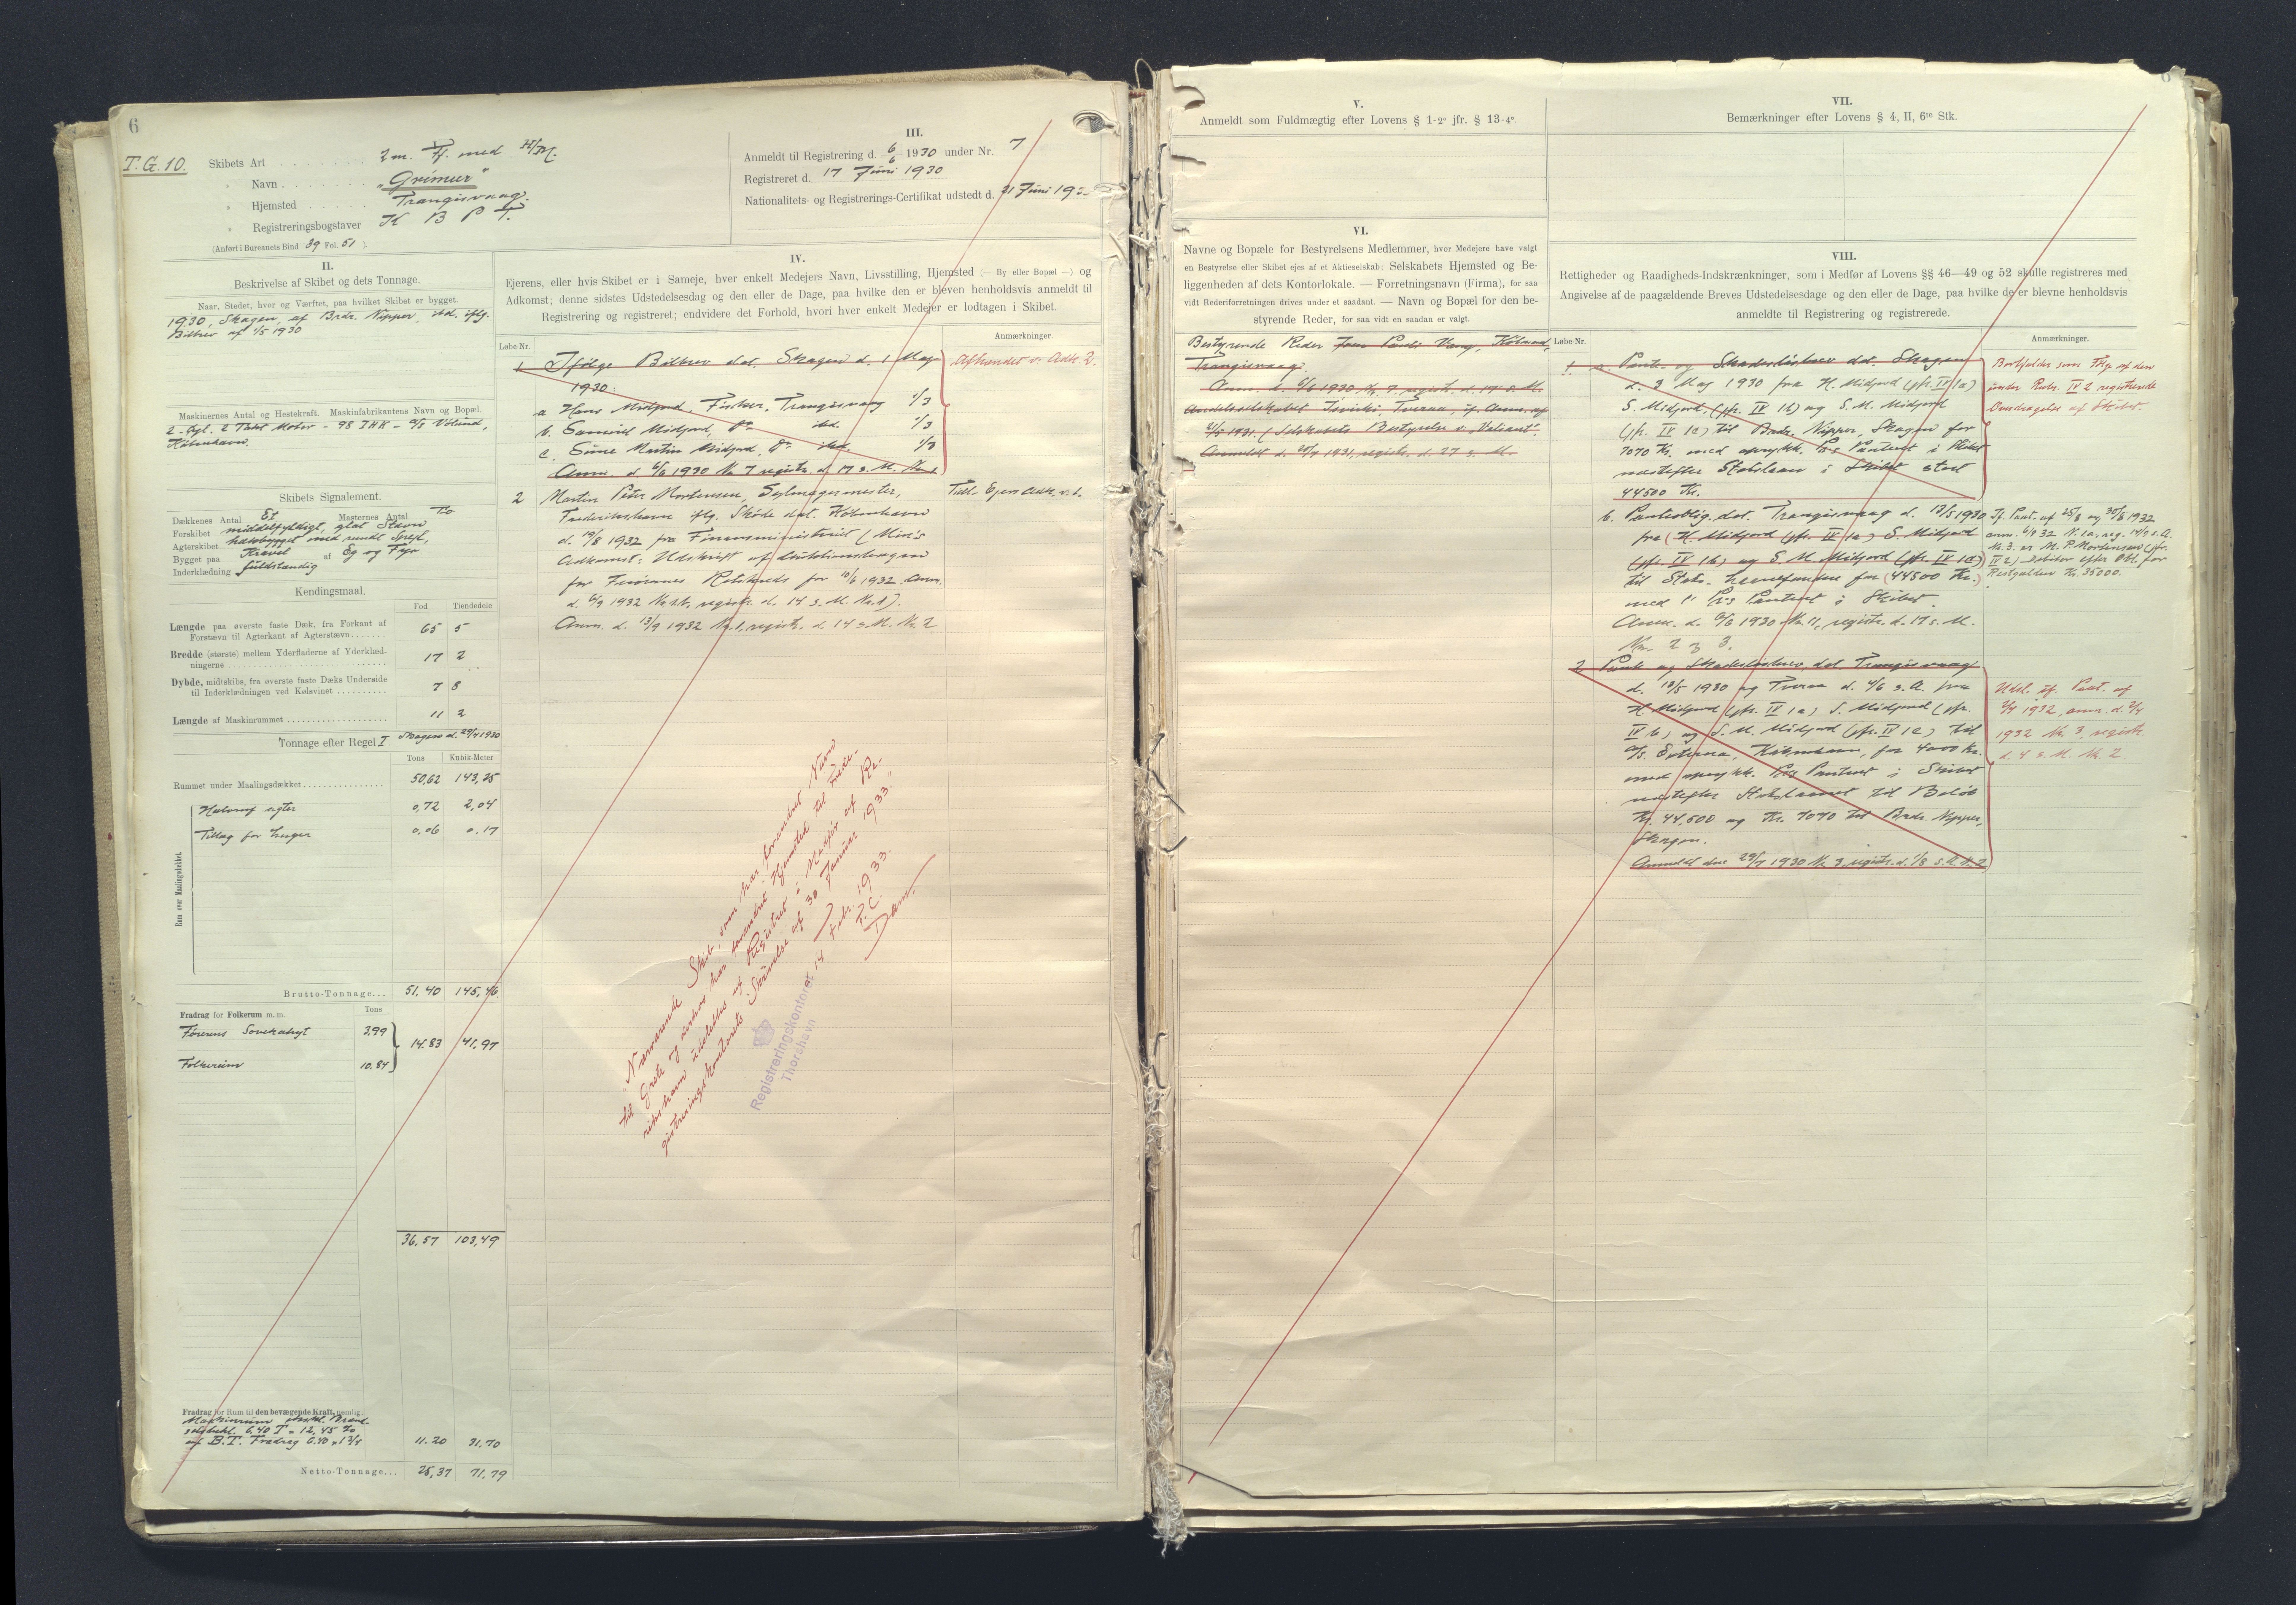 6
T.G. 10.
Skibets Art . . . . . . . 2 m. Ff. med H/M.
" Navn . . . . . . . "Grímur"
" Hjemsted . . . . . Trangisvaag.
" Registreringsbogstaver K B P T.
(Anført i Bureauets Bind 39 Fol. 51 ).
III.
Anmeldt til Registrering d. 6/6 1930 under Nr. 7
Registreret d. 17 Juni 1930
Nationalitets- og Registrerings-Certifikat udstedt d. 21 Juni 19
II.
Beskrivelse af Skibet og dets Tonnage.
Naar, Stedet, hvor og Værftet, paa hvilket Skibet er bygget.
1930, Skagen, af Brdr. Nipper, ibd. iflg.
Bilbrev af 1/5 1930
Maskinernes Antal og Hestekraft. Maskinfabrikantens Navn og Bopæl.
2-Cyl. 2 Takt Motor - 98 IHK - A/S Vølund,
København.
Skibets Signalement.
Dækkenes Antal Et Masternes Antal To
Forskibet middelfyldigt, glat Stævn
Agterskibet halvbygget med rundt Spejl,
Bygget paa Kravel af Eg og Fyr
Inderklædning fuldstændig
Kendingsmaal.
Fod Tiendedele
Længde paa øverste faste Dæk, fra Forkant af
Forstævn til Agterkant af Agterstævn . . . . . . 65 5
Bredde (største) mellem Yderfladerne af Yderklæd-
ningerne . . . . . . 17 2
Dybde, midtskibs, fra øverste faste Dæks Underside
til Inderklædningen ved Kølsvinet . . . . . . 7 8
Længde af Maskinrummet . . . . . . 11 2
Tonnage efter Regel I Skagen d. 29/4 1930
Tons Kubik-Meter
Rummet under Maalingsdækket . . . . . . 50,62 143,25
Rum over Maalingsdækket.
Halvruf agter 0,72 2,04
Tillæg for Luger 0,06 0,17
Brutto-Tonnage... 51,40 145,46
Fradrag for Folkerum m. m. Tons
Førerens Sovekahyt 3,99
14,83 41,97
Folkerum 10,84
36,57 103,49
Fradrag for Rum til den bevægende Kraft, nemlig:
Maskinrum
6,40 T = 12,45 %
af B.T. Fradrag 6.40 × 1 3/4 11.20 31,70
Netto-Tonnage... 25,37 71,79
IV.
Ejerens, eller hvis Skibet er i Sameje, hver enkelt Medejers Navn, Livsstilling, Hjemsted (— By eller Bopæl —) og
Adkomst; denne sidstes Udstedelsesdag og den eller de Dage, paa hvilke den er bleven henholdsvis anmeldt til
Registrering og registreret; endvidere det Forhold, hvori hver enkelt Medejer er lodtagen i Skibet.
Løbe-Nr. Anmærkninger.
1 Ifølge Bilbrev dat. Skagen d. 1 Maj
1930: Afhændet v. Adk. 2.
a Hans Midjord, Fisker, Trangisvaag 1/3
b. Samuel Midjord, do ibd. 1/3
c. Süne Martin Midjord, do ibd. 1/3
Anm. d. 6/6 1930 Nr. 7 registr. d. 17 s. M.
2 Martin Peter Mortensen, Sejlmagermester,
Tidl. Ejers Adk. v. 1.
Frederikshavn iflg. Skøde dat. København
d. 19/8 1932 fra Finansministeriet (Min's
Adkomst: Udskrift af Auktionsbogen
for Færøernes Retskreds for 10/6 1932. Anm.
d. 6/9 1932 Nr. 1 b, registr. d. 14 s. M. Nr. 1).
Anm. d. 13/9 1932 Nr. 1, registr. d. 14 s. M. Nr. 2
Nærværende Skib, som har forandret Navn
til Grete og derhos har forandret Hjemsted til Frede-
rikshavn udslettes af Registret i Medfør af Re-
gistreringskontorets Skrivelse af 30 Januar 1933.
Registreringskontoret, 14 Febr. 1933.
Thorshavn
P.C.
Dam.
V.
Anmeldt som Fuldmægtig efter Lovens § 1-2° jfr. § 13-4°.
VI.
Navne og Bopæle for Bestyrelsens Medlemmer, hvor Medejere have valgt
en Bestyrelse eller Skibet ejes af et Aktieselskab; Selskabets Hjemsted og Be-
liggenheden af dets Kontorlokale. — Forretningsnavn (Firma), for saa
vidt Rederiforretningen drives under et saadant. — Navn og Bopæl for den be-
styrende Reder, for saa vidt en saadan er valgt.
Bestyrende Reder Jens Pauli Vang, Købmand,
Trangisvaag.
Anm. d. 6/6 1930 Nr. 7, registr. d. 17 s. M.
Andelsselskabet Tveraa, if. Anm. af
1931. (Selskabets Bestyrelse s. "Valiant".
Anmeldt d. 1931, registr. d. 27 s. M.
VII.
Bemærkninger efter Lovens § 4, II, 6te Stk.
VIII.
Rettigheder og Raadigheds-Indskrænkninger, som i Medfør af Lovens §§ 46—49 og 52 skulle registreres med
Angivelse af de paagældende Breves Udstedelsesdage og den eller de Dage, paa hvilke de er blevne henholdsvis
anmeldte til Registrering og registrerede.
Løbe-Nr. Anmærkninger.
1. a Pante- og Skadesløsbrev dat. Skagen
d. 3 Maj 1930 fra H. Midjord (jfr. IV 1a)
S. Midjord, (jfr. IV 1b) og S. M. Midjord
(jfr. IV 1c) til Brdr. Nipper, Skagen for
7070 Kr. med oprykk. Pr's Panteret i Skibet
næstefter Statslaan i Skibet stort
44500 Kr.
Bortfalder som Flg. af den
under Rubr. IV 2 registrerede
Overdragelse af Skibet.
b. Panteoblig. dat. Trangisvaag d. 13/5 1930
fra (H. Midjord (jfr. IV 1a) S. Midjord
(jfr. IV 1b) og S. M. Midjord (jfr. IV 1c))
til Stats-Havnefonden for (44500 Kr.)
med 1' Pr's Panteret i Skibet.
Anm. d. 6/6 1930 Nr. 11, registr. d. 17 s. M.
Nr. 2 & 3.
If. Paat. af 25/8 og 30/8 1932
anm. 6/9 32 N. 1a, reg. 14/9 s. A.
Nr. 3. er M. P. Mortensen (jfr.
IV 2) Debitor efter Obl. for
Restgælden Kr. 35000.
2 Pante og Skadesløsbrev dat. Trangisvaag
d. 13/5 1930 og Tveraa d. 4/6 s. A. fra
H. Midjord (jfr. IV 1a) S. Midjord (jfr.
IV b) og S. M. Midjord (jfr. IV 1c) til
A/S. København, for 4000 Kr.
med oprykk. Pr's Panteret i Skibet
næstefter Statslaanet til Beløb
Kr. 44,500 og Kr. 7070 til Brdr. Nipper,
Skagen.
Anmeldt den 29/7 1930 Nr. 3, registr. d. 1/8 s. A. Nr. 2
Udsl. if. Paat. af
1932, anm. d. 2/4
1932 Nr. 3, registr.
d. 4 s. M. Nr. 2.